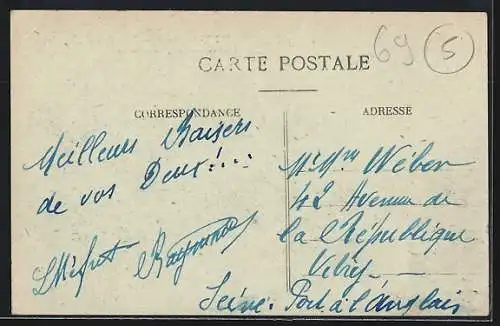 69 5
CARTE POSTALE
CORRESPONDANCE
ADRESSE
Meilleurs Baisers
de vos Deux!...
Raymond
Mr Mme Wéber
42 Avenue de
la République
Vitry
Seine. Port à l'anglais